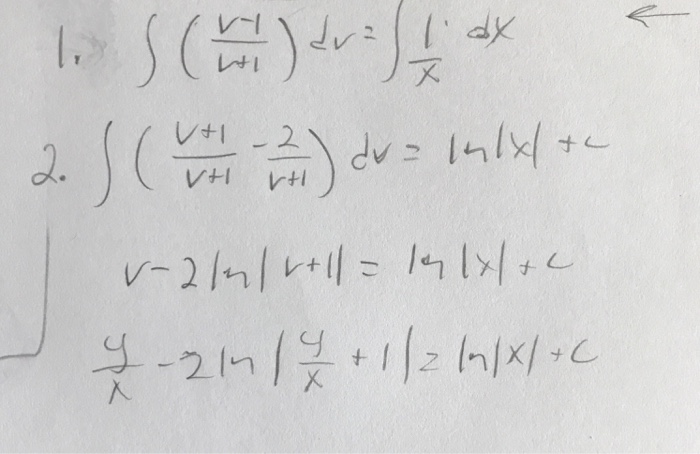 1. ∫ ( (v-1)/(v+1) ) dv = ∫ 1/x dx ←
2. ∫ ( (v+1)/(v+1) - 2/(v+1) ) dv = ln|x| + c
v - 2 ln|v+1| = ln|x| + c
y/x - 2 ln|y/x + 1| = ln|x| + c